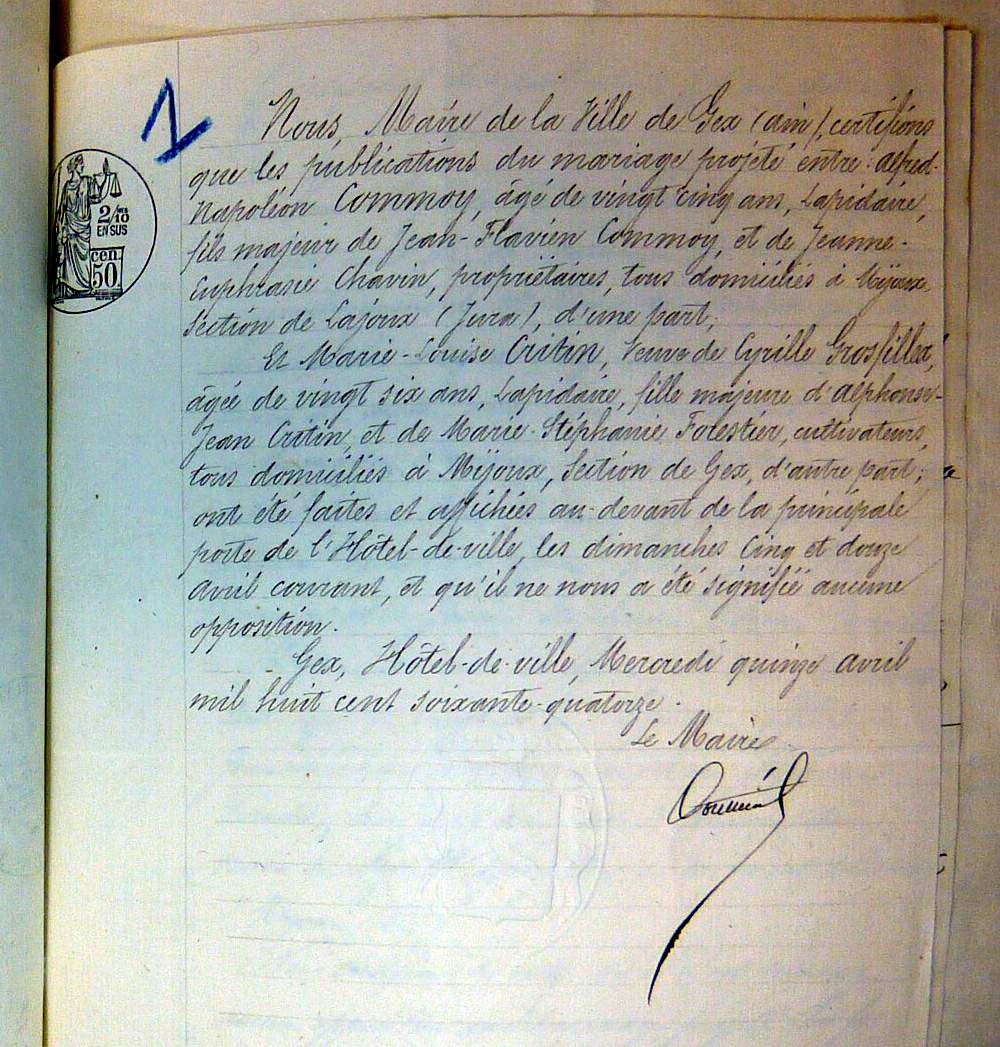 1
2/10
EN SUS
cen.
50
Nous, Maire de la Ville de Gex (ain), certifions
que les publications du mariage projeté entre: alfred-
Napoléon Commoy, âgé de vingt cinq ans, Lapidaire,
fils majeur de Jean-Flavien Commoy, et de Jeanne-
Euphrasie Chavin, propriétaires, tous domiciliés à Mijoux,
Section de Lajoux (Jura), d'une part;
Et Marie-Louise Critin, Veuve de Cyrille Grosfillex,
âgée de vingt six ans, Lapidaire, fille majeure d'alphonse-
Jean Critin, et de Marie-Stéphanie Forestier, cultivateurs,
tous domiciliés à Mijoux, Section de Gex, d'autre part;
ont été faites et affichées au-devant de la principale
porte de l'Hôtel-de-ville, les dimanches Cinq et douze
avril courant, et qu'il ne nous a été signifié aucune
opposition.
Gex, Hôtel-de-ville, Mercredi quinze avril
mil huit cent soixante-quatorze.
Le Maire